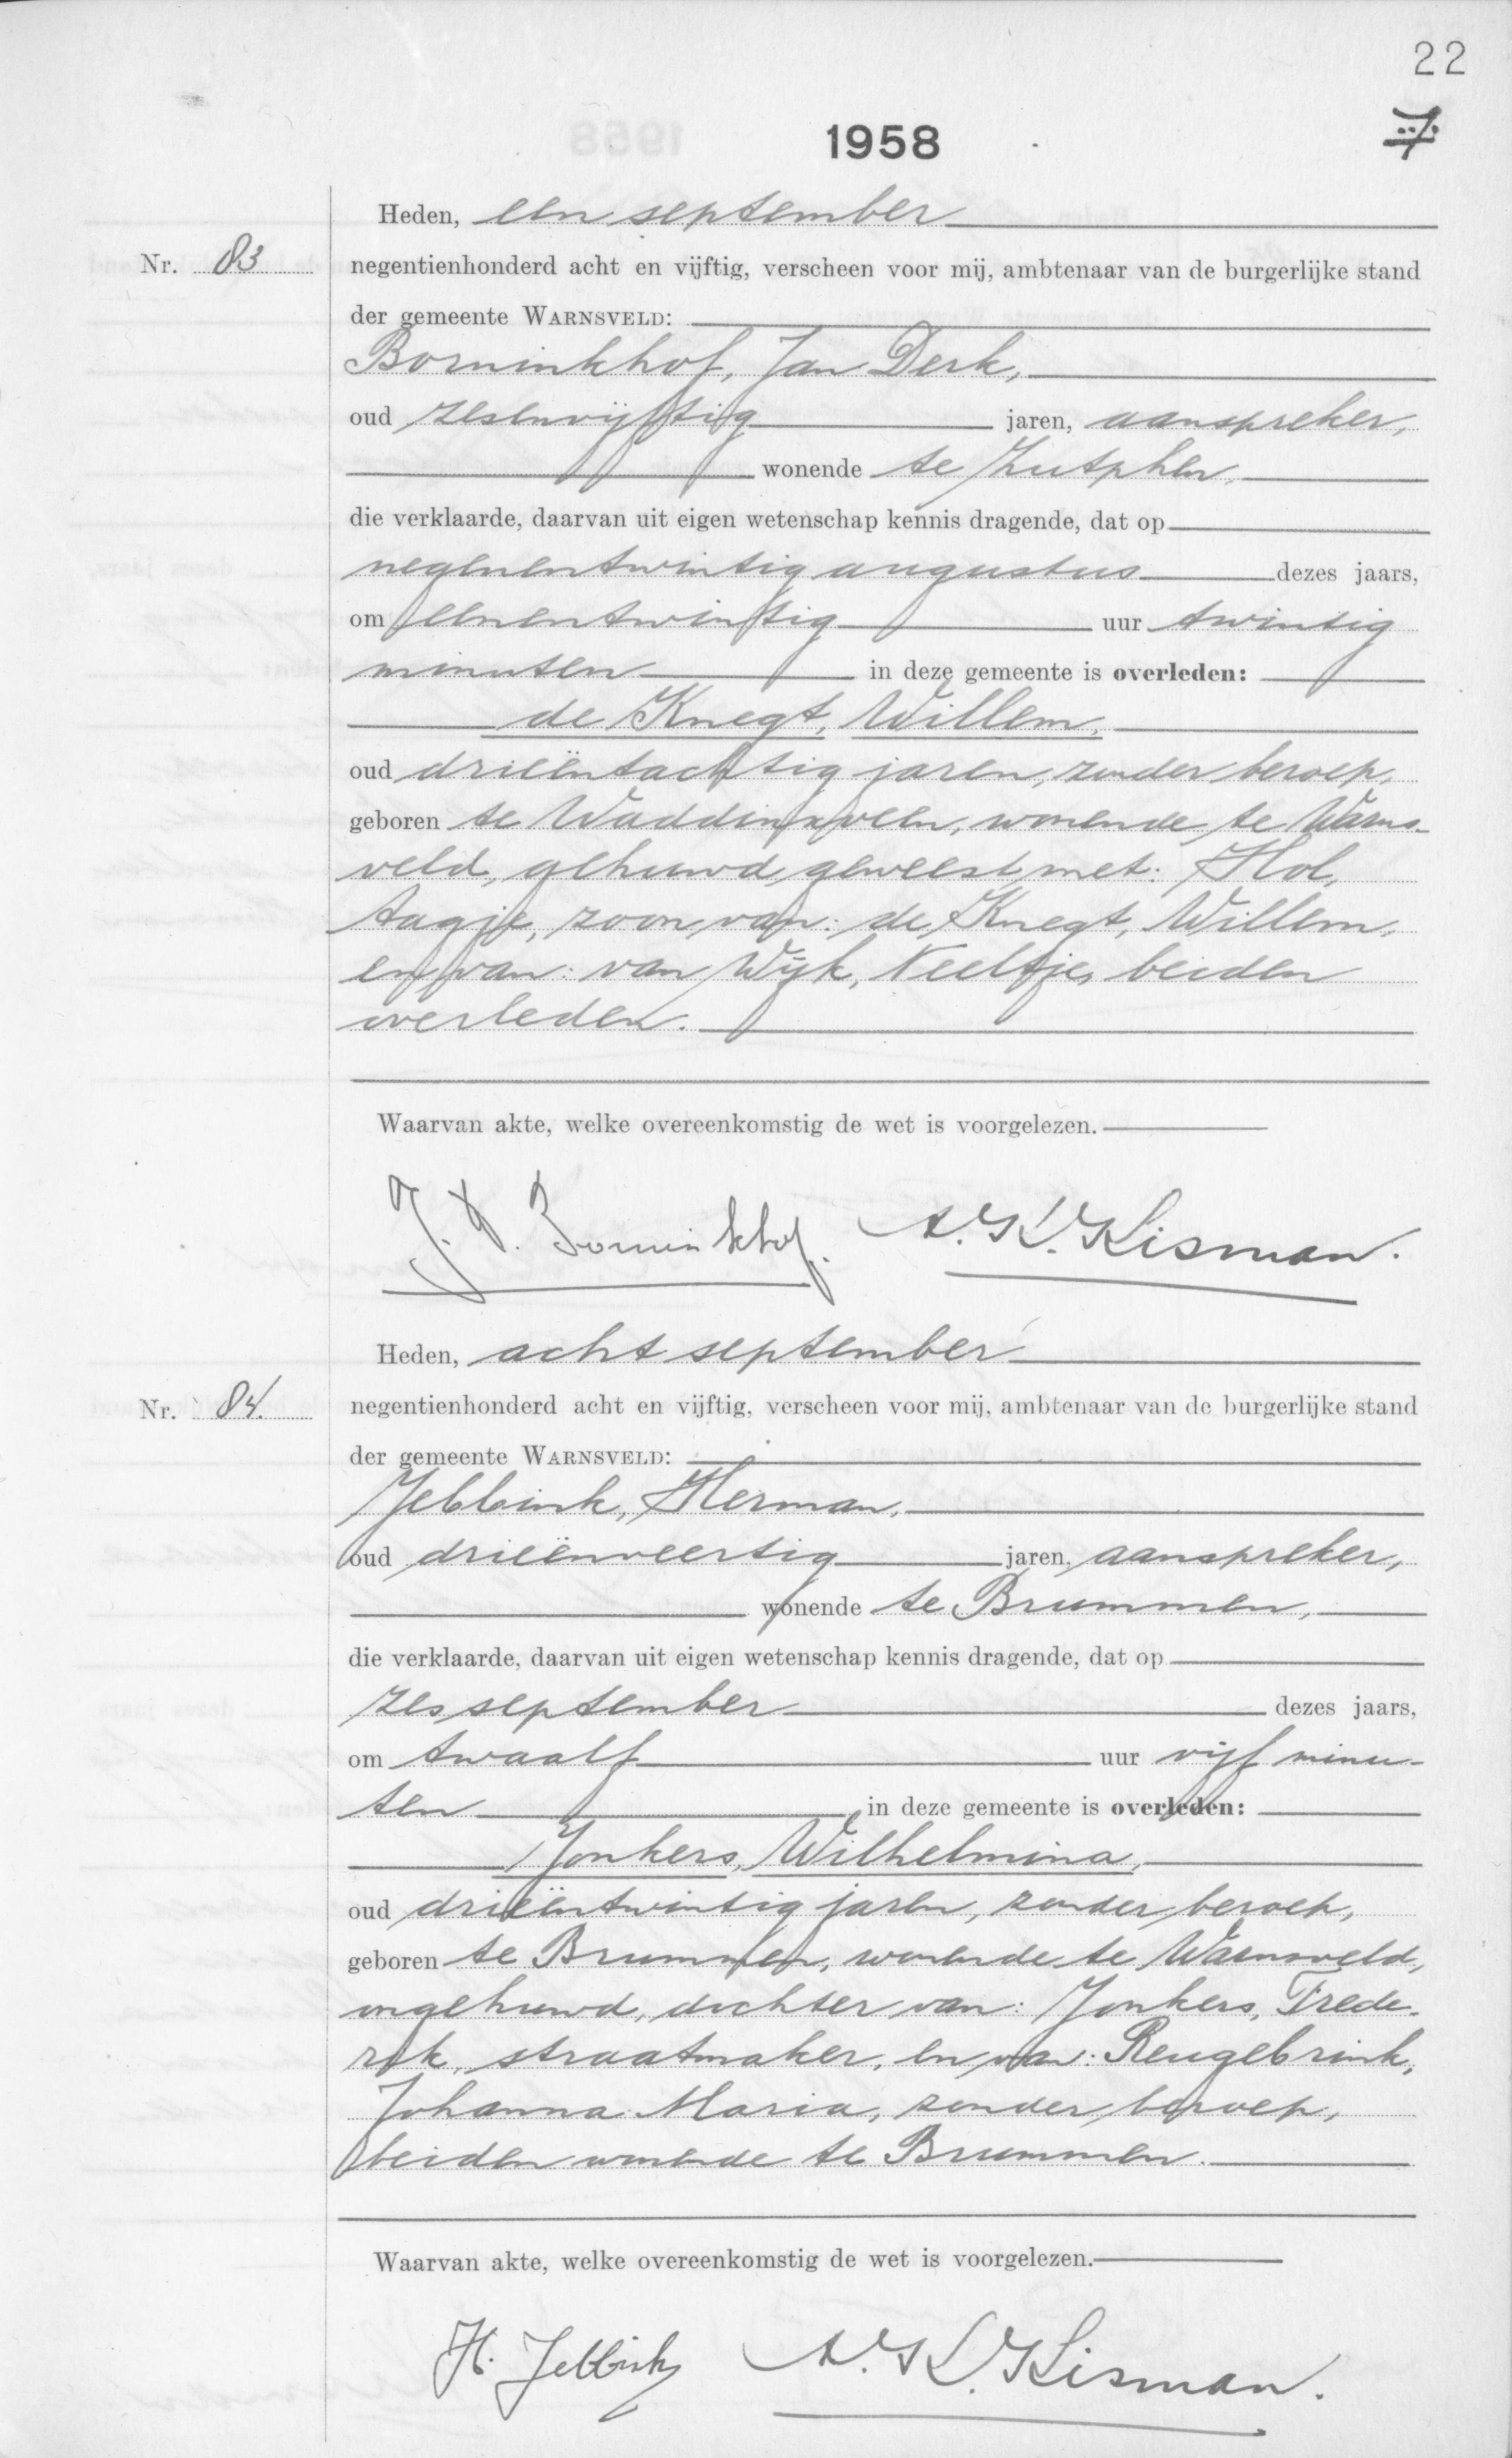 22
7
1958
Heden, een september
Nr. 83
negentienhonderd acht en vijftig, verscheen voor mij, ambtenaar van de burgerlijke stand
der gemeente WARNSVELD:
Borninkhof, Jan Derk,
oud zesenvijftig jaren, aanspreker,
wonende te Zutphen,
die verklaarde, daarvan uit eigen wetenschap kennis dragende, dat op
negenentwintig augustus dezes jaars,
om eenentwintig uur twintig
minuten in deze gemeente is overleden:
de Knegt, Willem,
oud drieëntachtig jaren, zonder beroep,
geboren te Waddinxveen, wonende te Warns-
veld, gehuwd geweest met: Hol,
Aagje, zoon van: de Knegt, Willem,
en van: van Wijk, Neeltje, beiden
overleden.
Waarvan akte, welke overeenkomstig de wet is voorgelezen.
J. D. Borninkhof. A. K. Kisman.
Heden, acht september
Nr. 84.
negentienhonderd acht en vijftig, verscheen voor mij, ambtenaar van de burgerlijke stand
der gemeente WARNSVELD:
Jebbink, Herman,
oud drieënveertig jaren, aanspreker,
wonende te Brummen,
die verklaarde, daarvan uit eigen wetenschap kennis dragende, dat op
zes september dezes jaars,
om twaalf uur vijf minu-
ten in deze gemeente is overleden:
Jonkers, Wilhelmina,
oud drieëntwintig jaren, zonder beroep,
geboren te Brummen, wonende te Warnsveld,
ongehuwd, dochter van: Jonkers, Frede-
rik, straatmaker, en van: Reugebrink,
Johanna Maria, zonder beroep,
beiden wonende te Brummen.
Waarvan akte, welke overeenkomstig de wet is voorgelezen.
H. Jebbink A. K. Kisman.